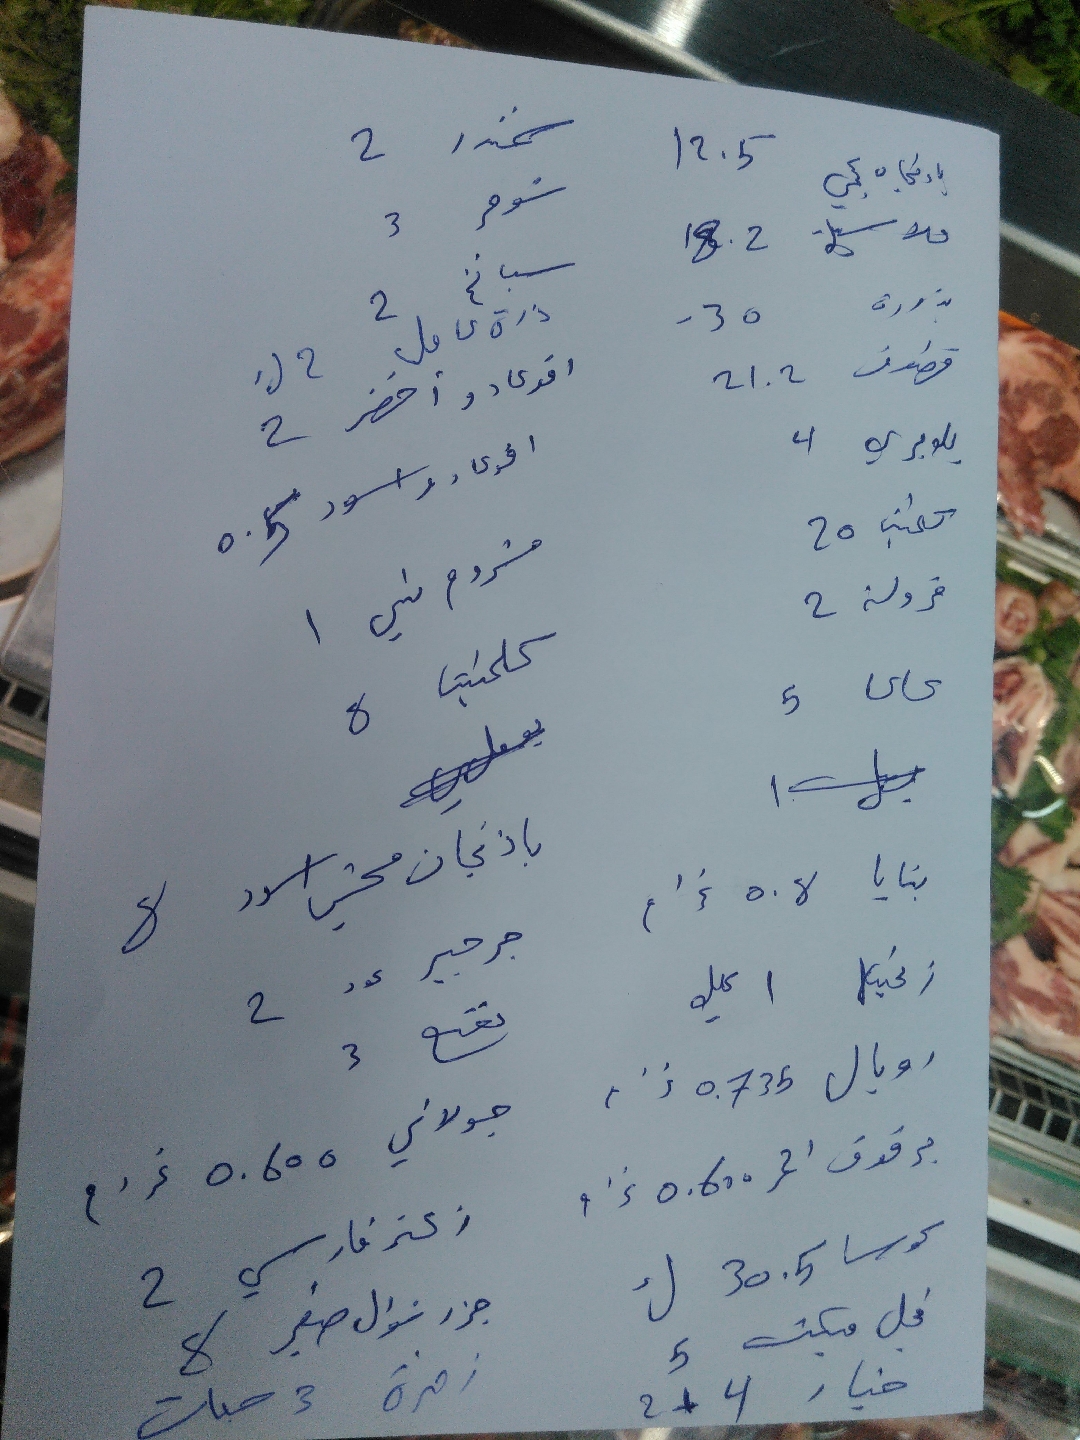 12.5
18.2
بندورة 30 -
21.2
بلوبري 4
20
فرولة 2
كاكا 5
1
بتايا 0.8 غرام
زنجبيل 1 كيلو
رويال 0.735 غرام
برقوق احمر 0.600 غرام
كوسا 30.5 ك
فجل مبكت 5
خيار 4 + 2
شمندر 2
شومر 3
سبانخ 2
ذرة كامل 2 ك
افوكادو أخضر 2
افوكادو اسود 0.5
مشروم بني 1
كلمنتينا 8
باذنجان محشي اسود 8
جرجير عدد 2
نعنع 3
جولاني 0.600 غرام
زعتر فارسي 2
جزر شوال صغير 8
زهرة 3 حبات